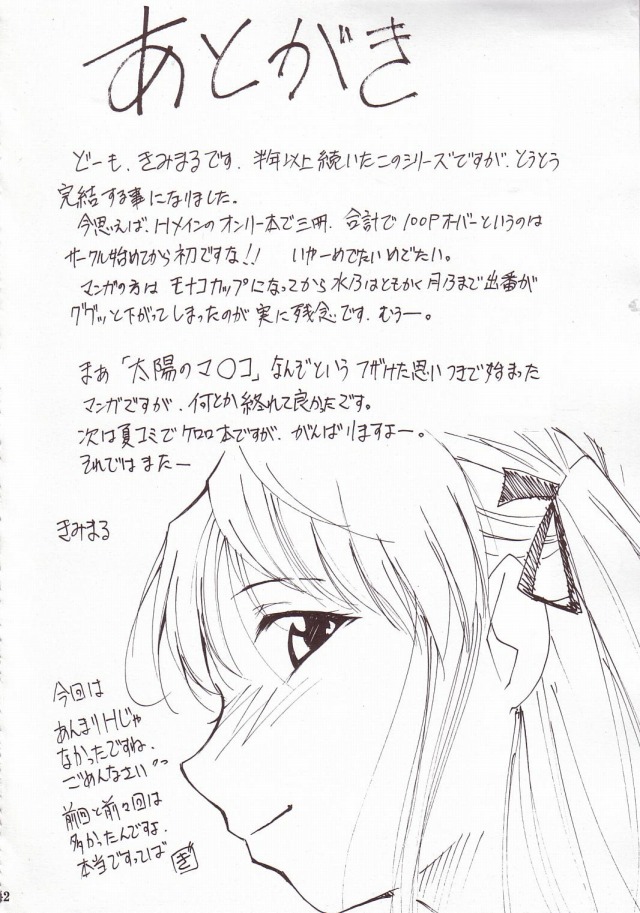 あとがき
どーも、きみまるです。半年以上続いたこのシリーズですが、とうとう
完結する事になりました。
今思えば、Hメインのオンリー本で三冊、合計で100Pオーバーというのは
サークル始めてから初ですな!! いやーめでたいめでたい。
マンガの方は モナコカップになってから 水乃はともかく月乃まで出番が
ググッと下がってしまったのが 実に残念です。むぅー。
まぁ「太陽のマ〇コ」なんぞという フザけた思いつきで始まった
マンガですが、何とか終れて良かったです。
次は夏コミでケロロ本ですが、がんばりますよー。
それではまたー
きみまる
今回は
あんまりHじゃ
なかったですね、
ごめんなさい
前回と前々回は
多かったんですよ、
本当ですってば
42